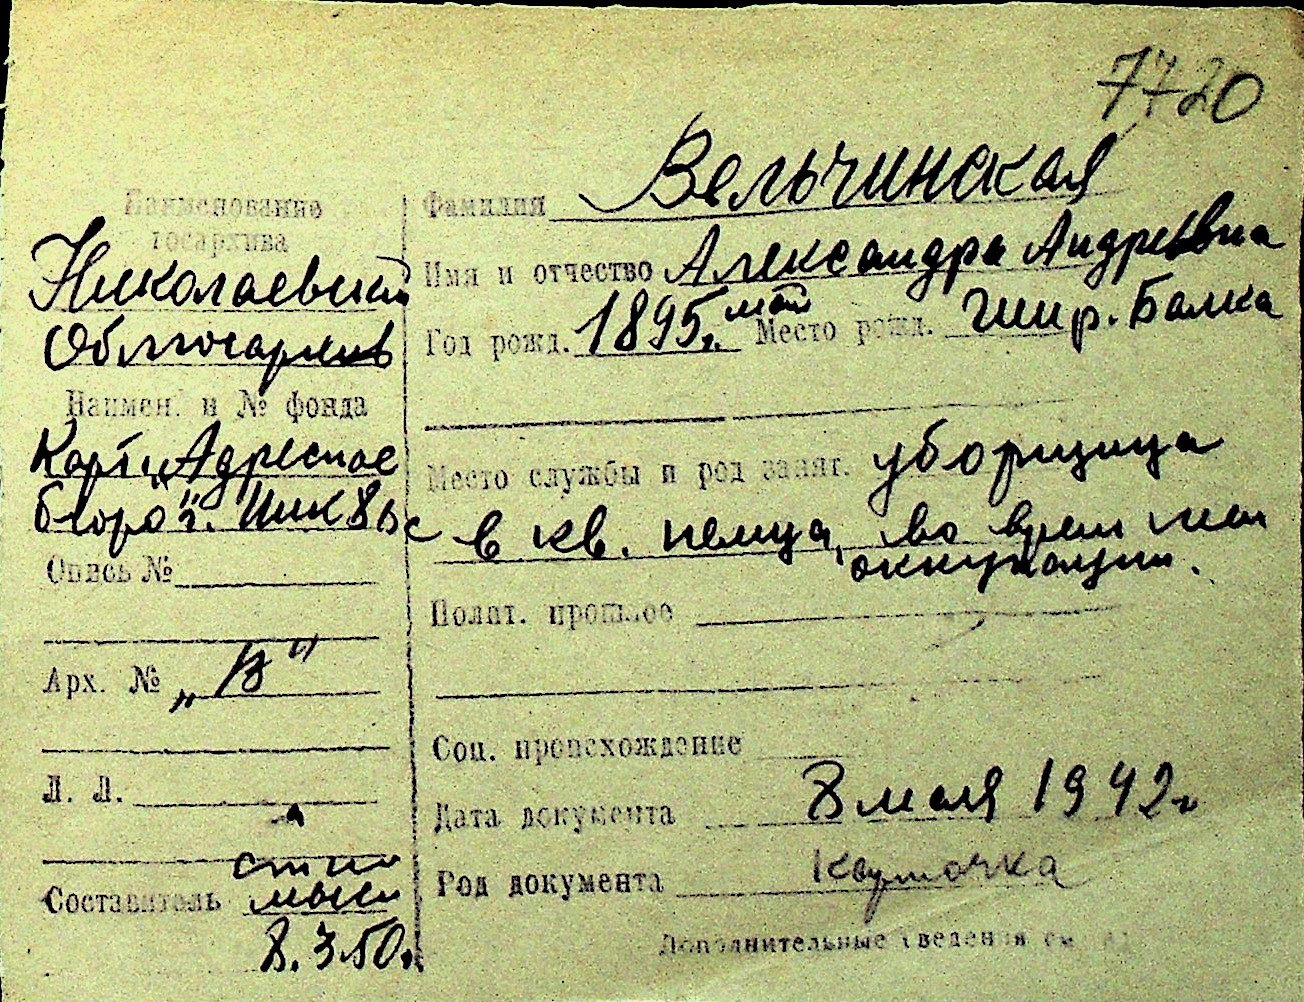 7720
Наименование
госархива
Николаевский
Облгосархив
Наимен. и № фонда
Карт. „Адресное
бюро" г. Ник
Опись №
Арх. № „В"
Л. Л.
Составитель
8.3.50.
Фамилия Вельчинская
Имя и отчество Александра Андреевна
Год рожд. 1895 г. май Место рожд. Шир. Балка
Место службы и род занят. уборщица
в кв. немца, во время нем
оккупации.
Полит. прошлое
Соц. происхождение
Дата документа 8 мая 1942 г
Род документа карточка
Дополнительные сведения см.